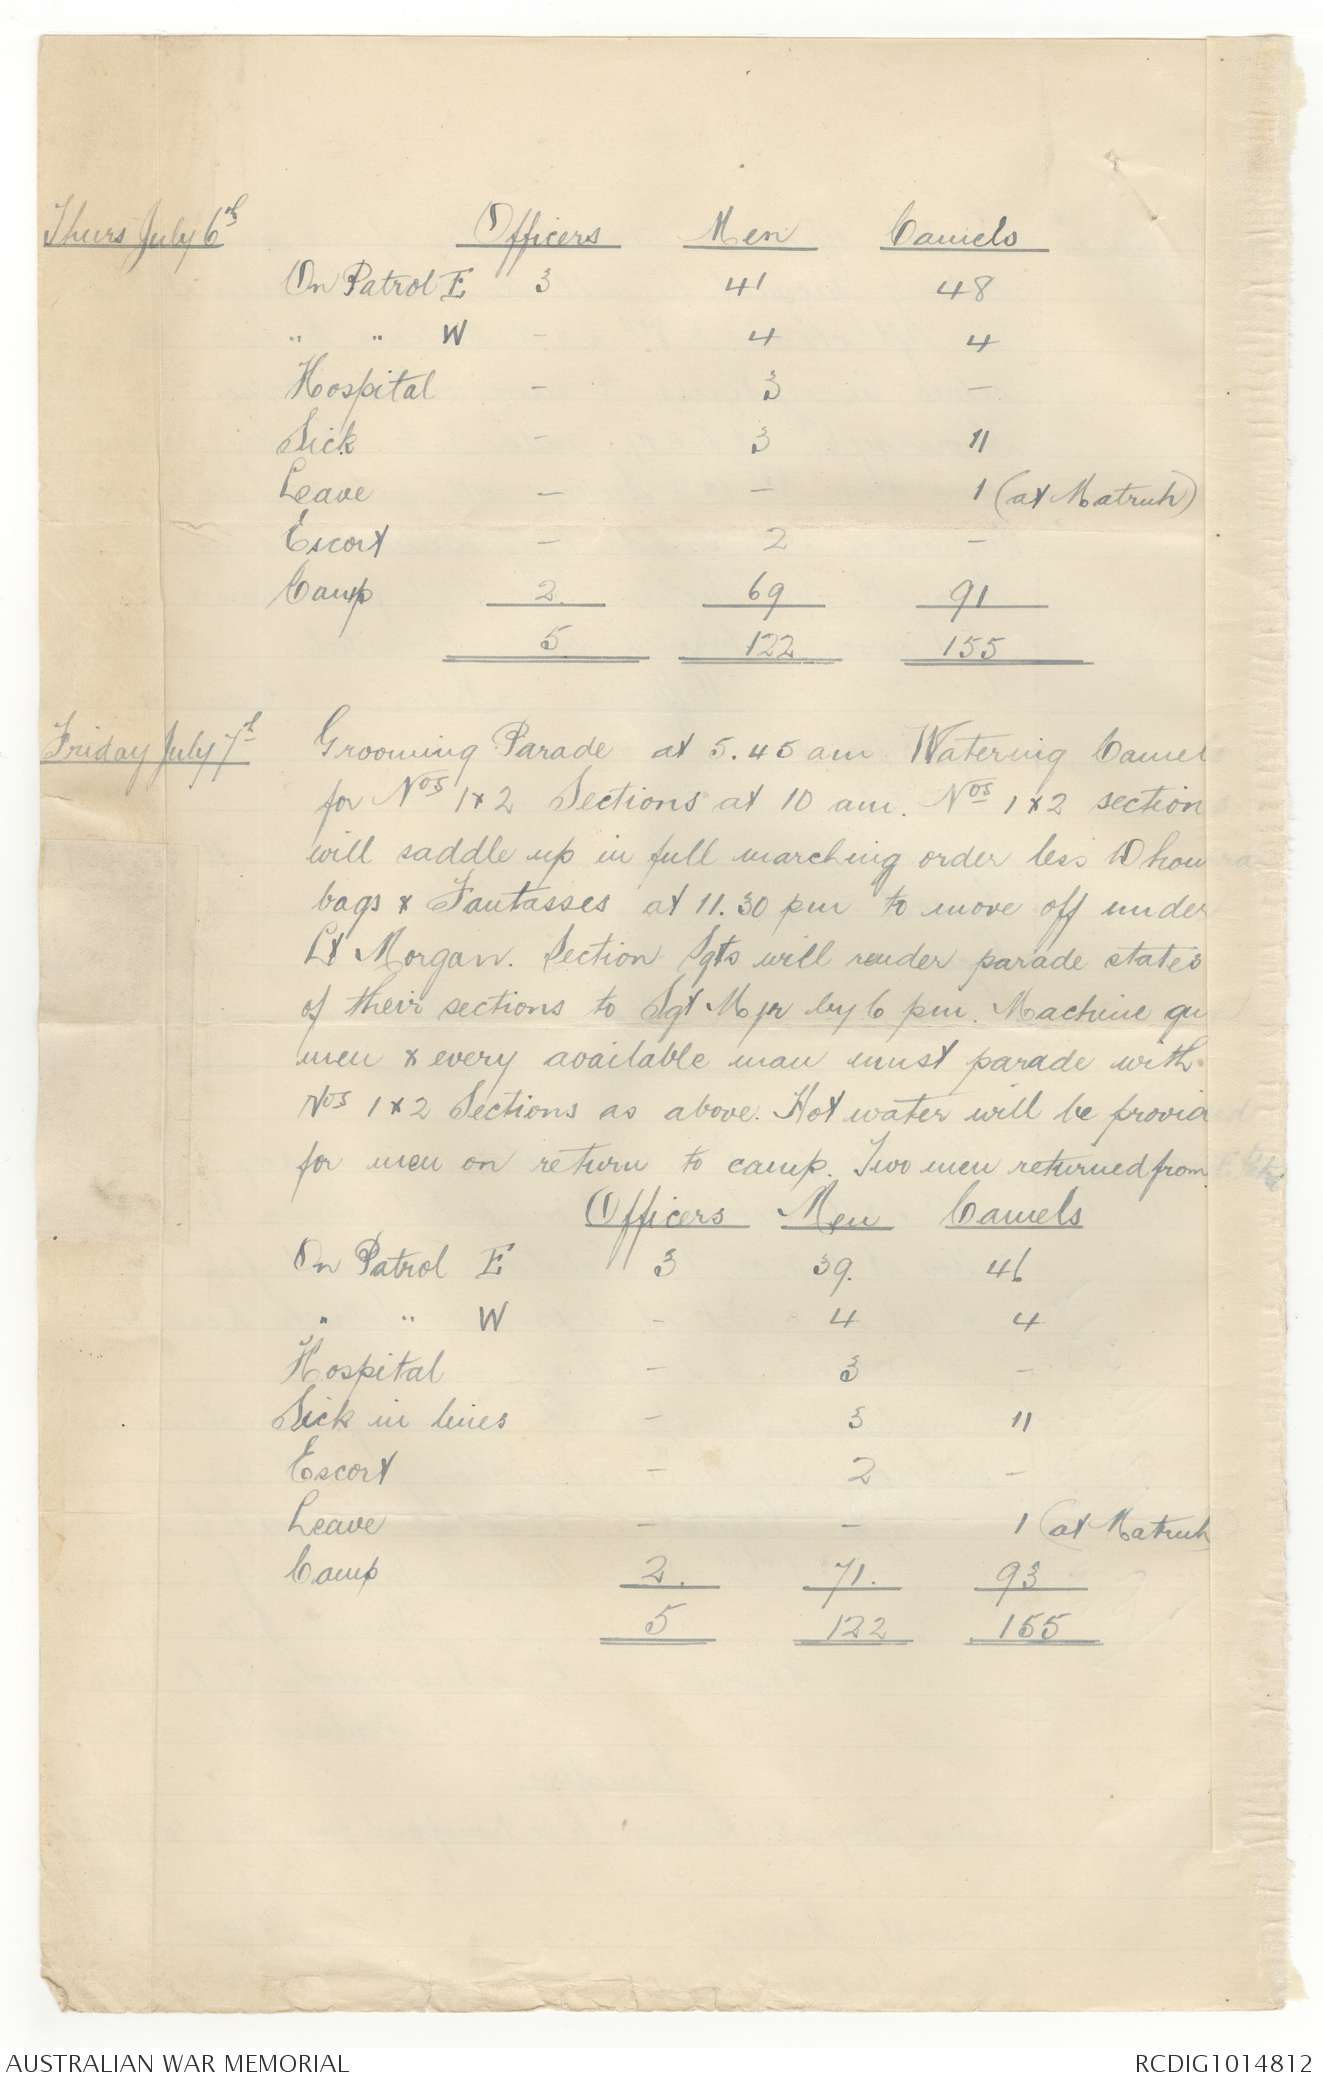 Thurs July 6th Officers Men Camels
On Patrol E 3 41 48
" " W - 4 4
Hospital - 3 -
Sick - 3 11
Leave - - 1 (at Matruh)
Escort - 2 -
Camp 2. 69 91
5 122 155
Friday July 7th Grooming Parade at 5.45 am Watering Camel
for Nos 1 & 2 Sections at 10 am. Nos 1 & 2 section
will saddle up in full marching order less Dhourra
bags & Fantasses at 11.30 pm to move off under
Lt Morgan. Section Sgts will render parade states
of their sections to Sgt Mjr by 6 pm. Machine gu
men & every available man must parade with
Nos 1 & 2 Sections as above. Hot water will be provid
for men on return to camp. Two men returned from
Officers Men Camels
On Patrol E 3 39. 46
" " W - 4 4
Hospital - 3 -
Sick in lines - 3 11
Escort - 2 -
Leave - - 1 (at Matruh
Camp 2. 71. 93
5 122 155
AUSTRALIAN WAR MEMORIAL RCDIG1014812